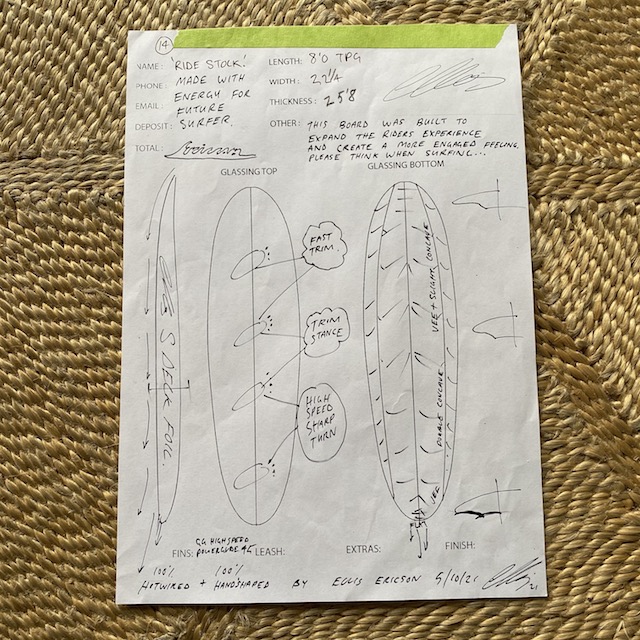 14
NAME: 'RIDE STOCK'.
MADE WITH
ENERGY FOR
FUTURE
SURFER.
PHONE:
EMAIL:
DEPOSIT:
TOTAL:
LENGTH: 8'0 TPG
WIDTH: 22 1/4
THICKNESS: 2 5'8
OTHER: THIS BOARD WAS BUILT TO
EXPAND THE RIDERS EXPERIENCE
AND CREATE A MORE ENGAGED FEELING.
PLEASE THINK WHEN SURFING...
GLASSING TOP
GLASSING BOTTOM
S DECK FOIL.
FAST
TRIM.
TRIM
STANCE
HIGH
SPEED
SHARP
TURN
VEE + SLIGHT CONCAVE
DOUBLE CONCAVE
VEE
FINS:
GG HIGHSPEED
LEASH:
EXTRAS:
FINISH:
100% 100%
HOTWIRED + HANDSHAPED BY ELLIS ERICSON 5/10/21
21